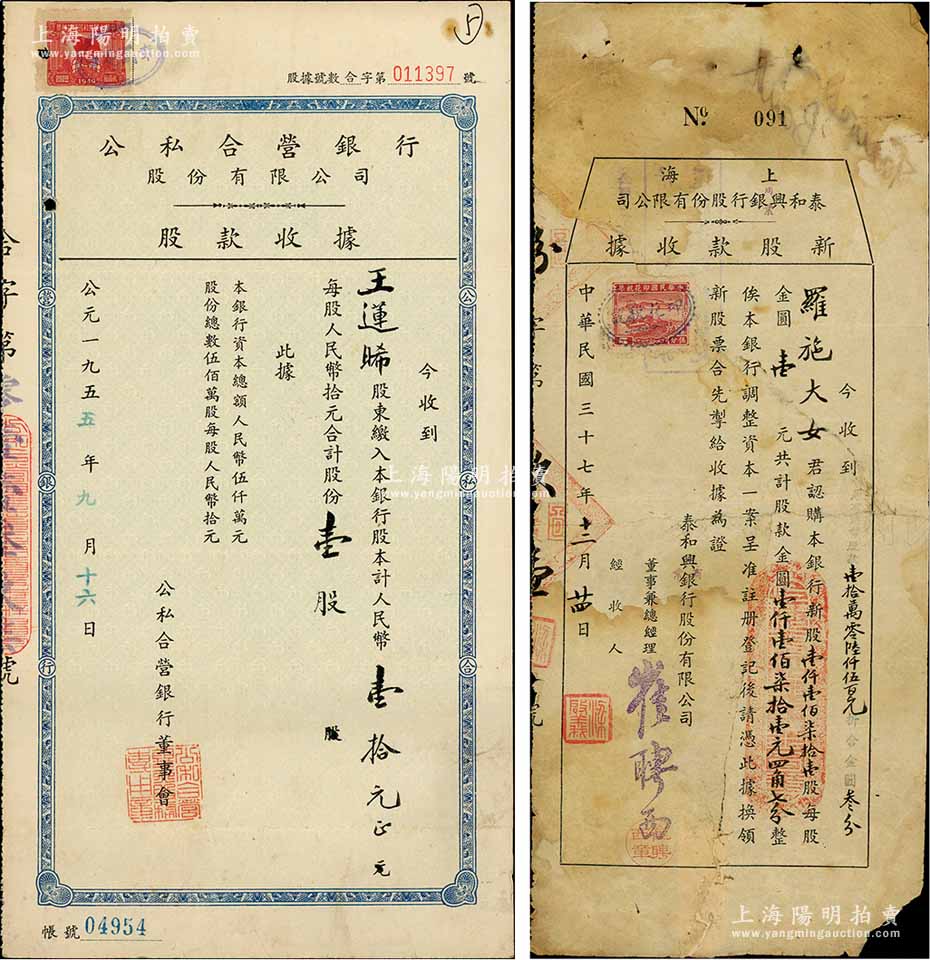 上海陽明拍賣
www.yangmingauction.com
5
股據號數合字第011397號
公私合營銀行
股份有限公司
股款收據
今收到
王運晞股東繳入本銀行股本計人民幣壹拾元正元
每股人民幣拾元合計股份壹股
此據
本銀行資本總額人民幣伍仟萬元
股份總數伍佰萬股每股人民幣拾元
公私合營銀行董事會
公元一九五五年九月十六日
帳號04954
公私合營銀行
No. 091
上海
泰和興銀行股份有限公司
新股款收據
今收到
羅施大女君認購本銀行新股壹仟壹佰柒拾壹股每股
壹拾萬零陸仟伍百元折合金圓叁分
金圓壹元共計股款金圓壹仟壹佰柒拾壹元四角七分整
俟本銀行調整資本一案呈准註册登記後請憑此據換領
新股票合先掣給收據為證
泰和興銀行股份有限公司
董事兼總經理
崔聘西
經收人
中華民國三十七年十二月廿四日
上海陽明拍賣
www.yangmingauction.com
上海陽明拍賣
www.yangmingauction.com